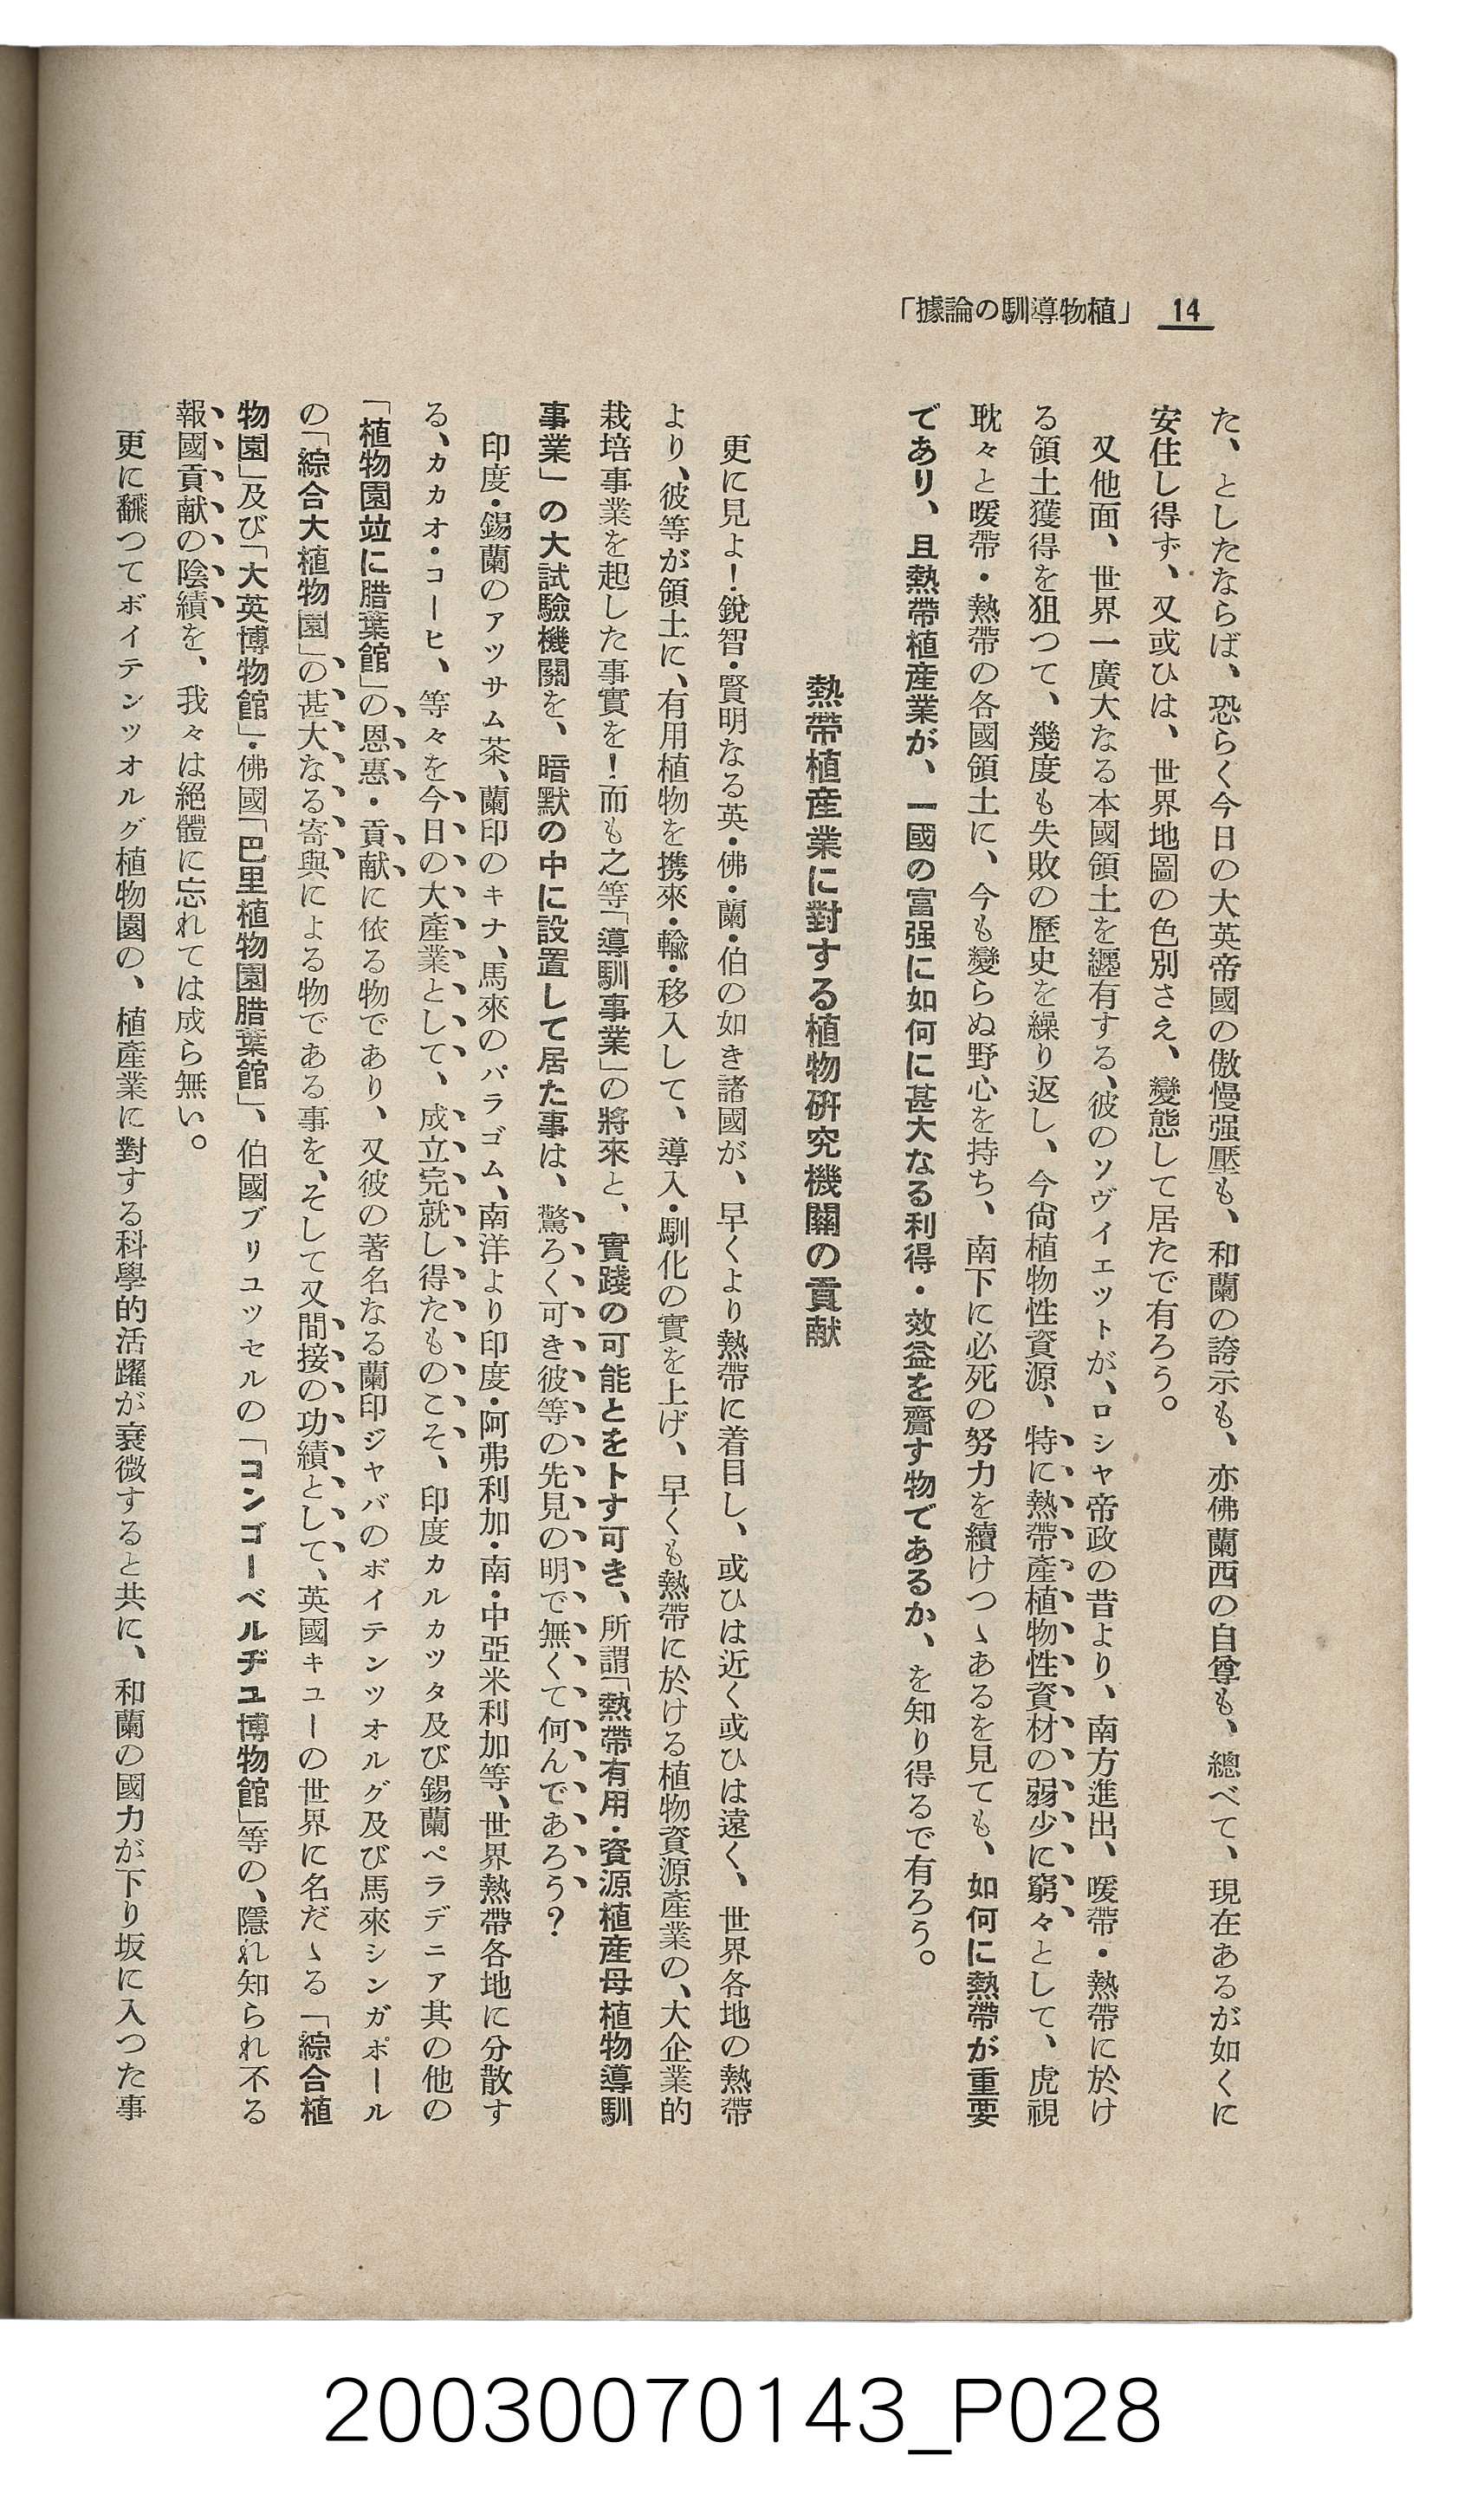 「據論の馴導物植」 14
た、としたならば、恐らく今日の大英帝國の傲慢强壓も、和蘭の誇示も、亦佛蘭西の自尊も、總べて、現在あるが如くに
安住し得ず、又或ひは、世界地圖の色別さえ、變態して居たで有ろう。
又他面、世界一廣大なる本國領土を纒有する、彼のソヴイエットが、ロシヤ帝政の昔より、南方進出、暖帶・熱帶に於け
る領土獲得を狙つて、幾度も失敗の歷史を繰り返し、今尙植物性資源、特に熱帶產植物性資材の弱少に窮々として、虎視
耽々と暖帶・熱帶の各國領土に、今も變らぬ野心を持ち、南下に必死の努力を續けつゝあるを見ても、如何に熱帶が重要
であり、且熱帶植產業が、一國の富强に如何に甚大なる利得・效益を齎す物であるか、を知り得るで有ろう。
熱帶植產業に對する植物硏究機關の貢献
更に見よ！銳智・賢明なる英・佛・蘭・伯の如き諸國が、早くより熱帶に着目し、或ひは近く或ひは遠く、世界各地の熱帶
より、彼等が領土に、有用植物を携來・輸・移入して、導入・馴化の實を上げ、早くも熱帶に於ける植物資源產業の、大企業的
栽培事業を起した事實を！而も之等「導馴事業」の將來と、實踐の可能とをト す可き、所謂「熱帶有用・資源植產母植物導馴
事業」の大試驗機關を、暗默の中に設置して居た事は、驚ろく可き彼等の先見の明で無くて何んであろう？
印度・錫蘭のアツサム茶、蘭印のキナ、馬來のパラゴム、南洋より印度・阿弗利加・南・中亞米利加等、世界熱帶各地に分散す
る、カカオ・コーヒ、等々を今日の大產業として、成立完就し得たものこそ、印度カルカツタ及び錫蘭ペラデニア其の他の
「植物園竝に腊葉館」の恩惠・貢献に依る物であり、又彼の著名なる蘭印ジヤバのボイテンツオルグ及び馬來シンガポール
の「綜合大植物園」の甚大なる寄與による物である事を、そして又間接の功績として、英國キユーの世界に名だゝる「綜合植
物園」及び「大英博物館」・佛國「巴里植物園腊葉館」、伯國ブリユツセルの「コンゴーベルヂユ博物館」等の、隱れ知られ不る
報國貢献の陰績を、我々は絕體に忘れては成ら無い。
更に飜つてボイテンツオルグ植物園の、植產業に對する科學的活躍が衰微すると共に、和蘭の國力が下り坂に入つた事
20030070143_P028